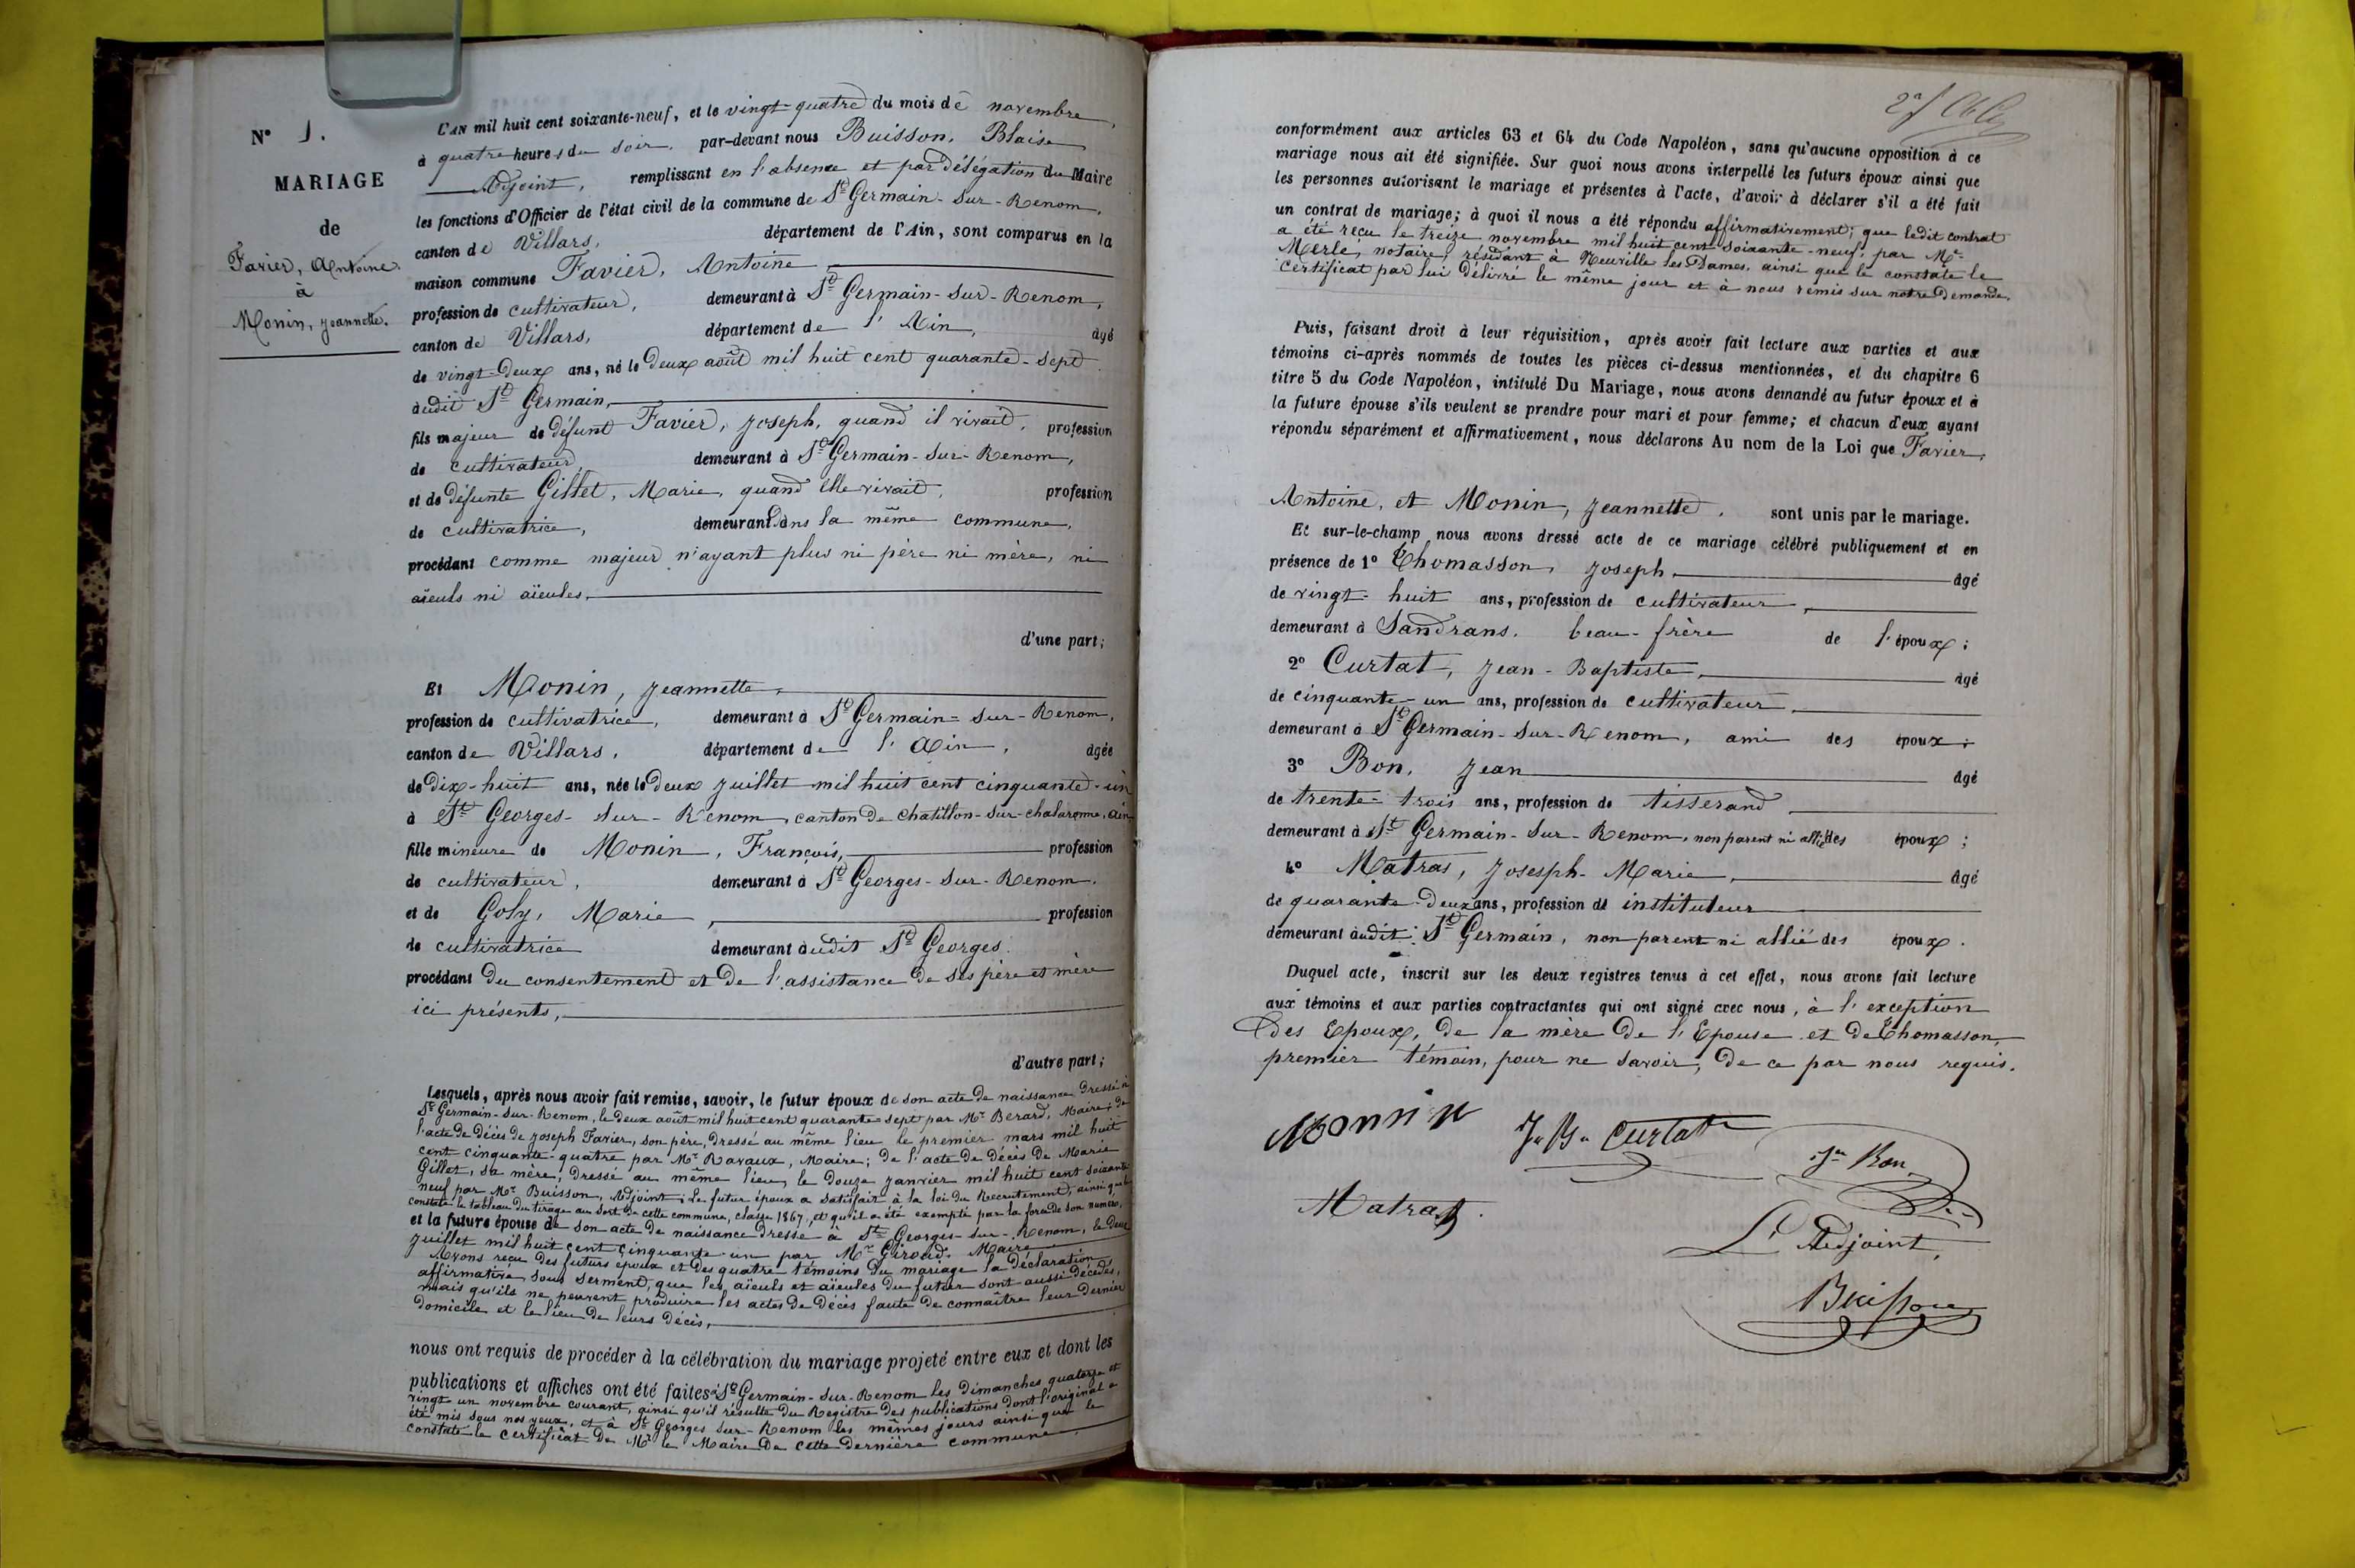 N° 1.
MARIAGE
de
Favier, Antoine
à
Monin, Jeannette.
L'AN mil huit cent soixante-neuf, et le vingt-quatre du mois de novembre,
à quatre heures du soir, par-devant nous Buisson, Blaise
Adjoint, remplissant en l'absence et par délégation du Maire
les fonctions d'Officier de l'état civil de la commune de St Germain-sur-Renom,
canton de Villars, département de l'Ain, sont comparus en la
maison commune Favier, Antoine
profession de cultivateur, demeurant à St Germain-sur-Renom,
canton de Villars, département de l'Ain, âgé
de vingt-deux ans, né le deux août mil huit cent quarante-sept
audit St Germain,
fils majeur de défunt Favier, Joseph, quand il vivait, profession
de cultivateur, demeurant à St Germain-sur-Renom,
et de défunte Gillet, Marie, quand elle vivait, profession
de cultivatrice, demeurant dans la même commune,
procédant comme majeur n'ayant plus ni père ni mère, ni
aïeuls ni aïeules,
d'une part;
Et Monin, Jeannette,
profession de cultivatrice, demeurant à St Germain-sur-Renom,
canton de Villars, département de l'Ain, âgée
de dix-huit ans, née le deux juillet mil huit cent cinquante-un
à St Georges-sur-Renom, canton de Chatillon-sur-chalaronne, Ain
fille mineure de Monin, François, profession
de cultivateur, demeurant à St Georges-sur-Renom.
et de Goly, Marie, profession
de cultivatrice demeurant audit St Georges.
procédant du consentement et de l'assistance de ses père et mère
ici présents,
d'autre part;
Lesquels, après nous avoir fait remise, savoir, le futur époux de son acte de naissance dressé à
St Germain-sur-Renom, le deux août mil huit cent quarante-sept par Mr Berard, Maire; de
l'acte de décès de Joseph Favier, son père, dressé au même lieu le premier mars mil huit
cent cinquante-quatre par Mr Ravaux, Maire; de l'acte de décès de Marie
Gillet, sa mère, dressé au même lieu, le douze janvier mil huit cent soixante
neuf par Mr Buisson, Adjoint; Le futur époux a satisfait à la loi du Recrutement, ainsi que le
constate le tableau du tirage au sort de cette commune, classe 1867, et qu'il a été exempté par la force de son numéro,
et la future épouse de son acte de naissance dressé à St Georges-sur-Renom, le deux
juillet mil huit cent cinquante-un par Mr Giroud, Maire
Avons reçu des futurs époux et des quatre témoins du mariage la déclaration
affirmative sous serment, que les aïeuls et aïeules du futur sont aussi décédés,
mais qu'ils ne peuvent produire les actes de décès faute de connaître leur dernier
domicile et le lieu de leurs décès,
nous ont requis de procéder à la célébration du mariage projeté entre eux et dont les
publications et affiches ont été faites à St Germain-sur-Renom les dimanches quatorze et
vingt-un novembre courant, ainsi qu'il résulte du Registre des publications dont l'original a
été mis sous nos yeux, et à St Georges-sur-Renom les mêmes jours ainsi que le
constate le certificat de Mr le Maire de cette dernière commune
conformément aux articles 63 et 64 du Code Napoléon, sans qu'aucune opposition à ce
mariage nous ait été signifiée. Sur quoi nous avons interpellé les futurs époux ainsi que
les personnes autorisant le mariage et présentes à l'acte, d'avoir à déclarer s'il a été fait
un contrat de mariage; à quoi il nous a été répondu affirmativement; que ledit contrat
a été reçu le treize novembre mil huit cent soixante-neuf, par Me
Merle, notaire, résidant à Neuville les Dames, ainsi que le constate le
certificat par lui délivré le même jour et à nous remis sur notre demande.
Puis, faisant droit à leur réquisition, après avoir fait lecture aux parties et aux
témoins ci-après nommés de toutes les pièces ci-dessus mentionnées, et du chapitre 6
titre 5 du Code Napoléon, intitulé Du Mariage, nous avons demandé au futur époux et à
la future épouse s'ils veulent se prendre pour mari et pour femme; et chacun d'eux ayant
répondu séparément et affirmativement, nous déclarons Au nom de la Loi que Favier,
Antoine, et Monin, Jeannette, sont unis par le mariage.
Et sur-le-champ nous avons dressé acte de ce mariage célébré publiquement et en
présence de 1° Thomasson, Joseph, âgé
de vingt-huit ans, profession de cultivateur,
demeurant à Sandrans, beau-frère de l'époux;
2° Curtat, Jean-Baptiste, âgé
de cinquante-un ans, profession de cultivateur
demeurant à St Germain-sur-Renom, ami des époux;
3° Bon, Jean âgé
de trente-trois ans, profession de tisserand
demeurant à St Germain-sur-Renom, non parent ni allié des époux;
4° Matras, Josesph-Marie, âgé
de quarante-deux ans, profession de instituteur
demeurant audit St Germain, non parent ni allié des époux.
Duquel acte, inscrit sur les deux registres tenus à cet effet, nous avons fait lecture
aux témoins et aux parties contractantes qui ont signé avec nous, à l'exception
des Epoux, de la mère de l'Epouse et de Thomasson,
premier témoin, pour ne savoir, de ce par nous requis.
Monnin J. B. Curtat
Jn Bon
Matras
L'Adjoint,
Buisson